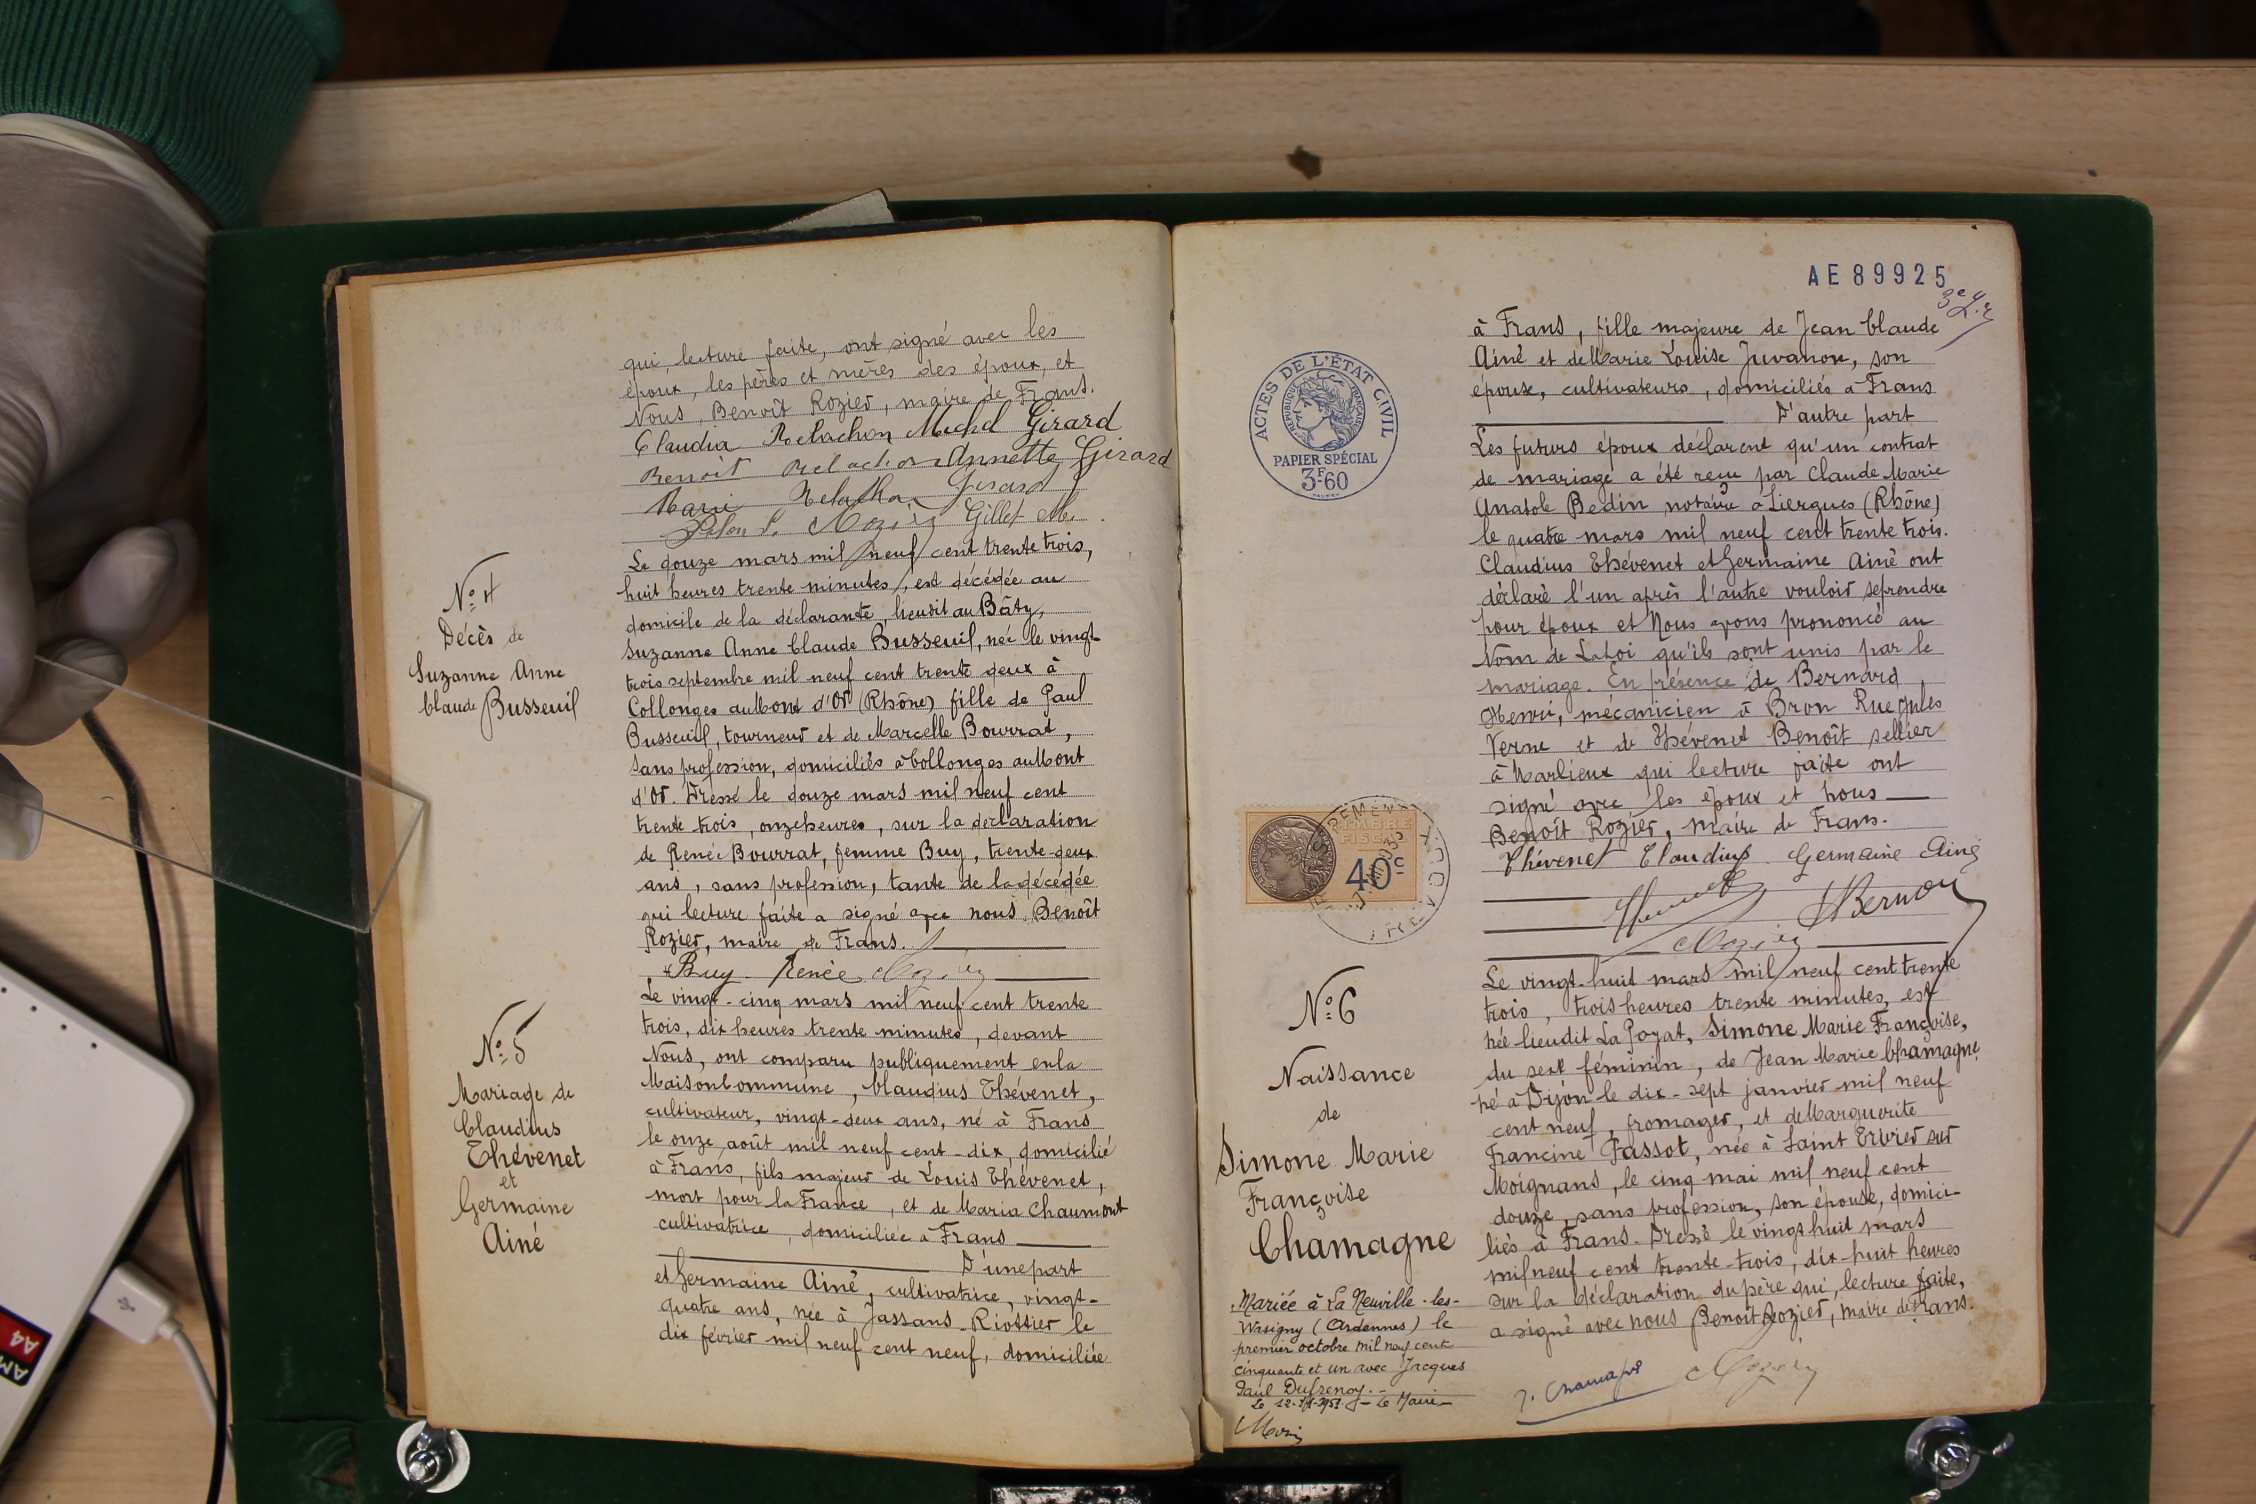 qui, lecture faite, ont signé avec les
époux, les pères et mères des époux, et
Nous, Benoît Rozier, maire de Frans.
Claudia Michel Girard
Benoît Annette Girard
Marie Girard
Gillet M.
N° 4
Décès de
Suzanne Anne
Claude Busseuil
Le douze mars mil neuf cent trente trois,
huit heures trente minutes, est décédée au
domicile de la déclarante, lieudit au Bâty,
Suzanne Anne Claude Busseuil, née le vingt
trois septembre mil neuf cent trente deux à
Collonges au Mont d'Or (Rhône) fille de Paul
Busseuil, tourneur et de Marcelle Bourrat,
sans profession, domiciliés à Collonges au Mont
d'Or. Dressé le douze mars mil neuf cent
trente trois, onze heures, sur la déclaration
de Renée Bourrat, femme Buy, trente-deux
ans, sans profession, tante de la décédée
qui lecture faite a signé avec nous, Benoît
Rozier, maire de Frans.
Buy Renée Rozier
N° 5
Mariage de
Claudius
Thévenet
et
Germaine
Ainé
Le vingt-cinq mars mil neuf cent trente
trois, dix heures trente minutes, devant
Nous, ont comparu publiquement en la
Maison Commune, Claudius Thévenet,
cultivateur, vingt-deux ans, né à Frans
le onze août mil neuf cent-dix, domicilié
à Frans, fils majeur de Louis Thévenet,
mort pour la France, et de Maria Chaumont
cultivatrice, domiciliée à Frans
D'une part
et Germaine Ainé, cultivatrice, vingt-
quatre ans, née à Jassans-Riottier le
dix février mil neuf cent neuf, domiciliée
AE 89925
à Frans, fille majeure de Jean Claude
Ainé et de Marie Louise Juvanon, son
épouse, cultivateurs, domiciliés à Frans
D'autre part
Les futurs époux déclarent qu'un contrat
de mariage a été reçu par Claude Marie
Anatole Bedin notaire à Liergues (Rhône)
le quatre mars mil neuf cent trente trois.
Claudius Thévenet et Germaine Ainé ont
déclaré l'un après l'autre vouloir se prendre
pour époux et Nous avons prononcé au
Nom de La Loi qu'ils sont unis par le
mariage. En présence de Bernard
Henri, mécanicien à Bron Rue Jules
Verne et de Thévenet Benoît sellier
à Marlieux qui lecture faite ont
signé avec les époux et nous
Benoît Rozier, Maire de Frans.
Thévenet Claudius Germaine Ainé
Rozier
ACTES DE L'ÉTAT CIVIL
RÉPUBLIQUE FRANÇAISE
PAPIER SPÉCIAL
3F.60
TIMBRE
FISCAL
40c
TREVOUX
N° 6
Naissance
de
Simone Marie
Françoise
Chamagne
Mariée à La Neuville-les-
Wasigny (Ardennes) le
premier octobre mil neuf cent
cinquante et un avec Jacques
Paul Dufrenoy.
Le Maire
Le vingt-huit mars mil neuf cent trente
trois, trois heures trente minutes, est
née lieudit La Pozat, Simone Marie Françoise,
du sexe féminin, de Jean Marie Chamagne
né à Dijon le dix-sept janvier mil neuf
cent neuf, fromager, et de Marguerite
Francine Passot, née à Saint Trivier sur
Moignans, le cinq mai mil neuf cent
douze, sans profession, son épouse, domici-
liés à Frans. Dressé le vingt huit mars
mil neuf cent trente-trois, dix-huit heures
sur la déclaration du père qui, lecture faite,
a signé avec nous Benoît Rozier, Maire de Frans.
J. Chamagne Rozier
A4